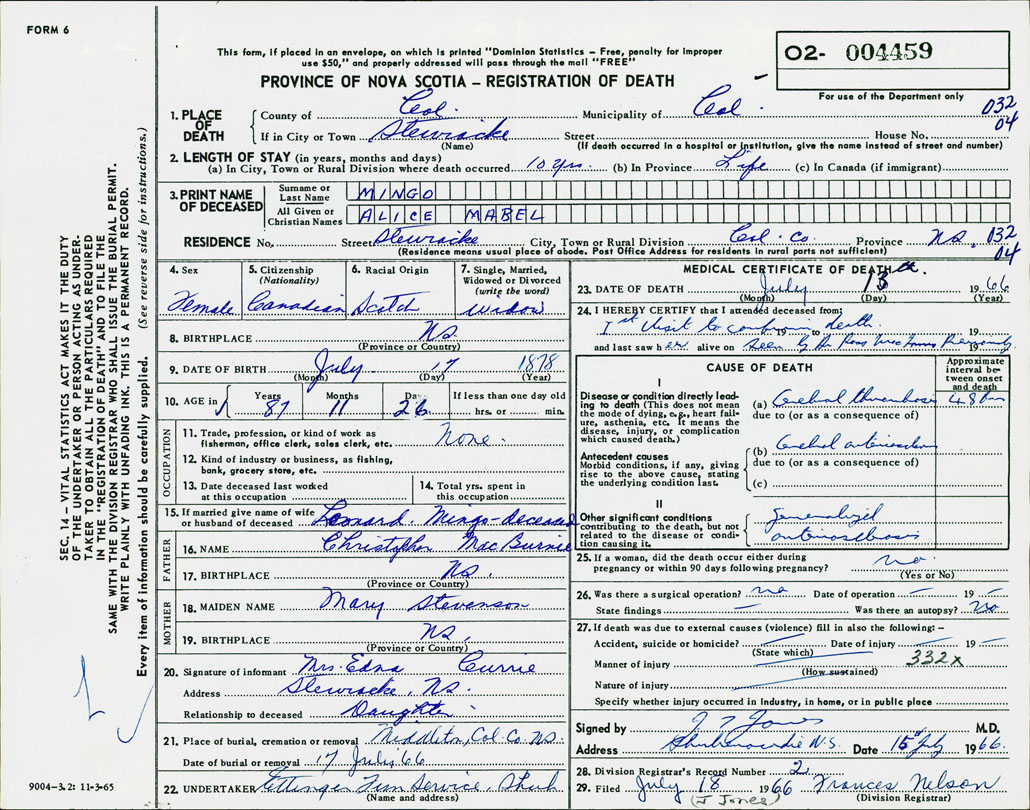 FORM 6
This form, if placed in an envelope, on which is printed "Dominion Statistics – Free, penalty for improper
use $50," and properly addressed will pass through the mail "FREE"
O2- 004459
PROVINCE OF NOVA SCOTIA – REGISTRATION OF DEATH
For use of the Department only
1. PLACE OF DEATH County of Col. Municipality of Col. 032
If in City or Town Stewiacke Street House No. 04
(Name) (If death occurred in a hospital or institution, give the name instead of street and number)
2. LENGTH OF STAY (in years, months and days)
(a) In City, Town or Rural Division where death occurred 10 yrs. (b) In Province Life (c) In Canada (if immigrant)
3. PRINT NAME OF DECEASED Surname or Last Name MINGO
All Given or Christian Names ALICE MABEL
RESIDENCE No. Street Stewiacke City, Town or Rural Division Col. Co. Province N.S. 032
(Residence means usual place of abode. Post Office Address for residents in rural parts not sufficient) 04
SEC. 14 – VITAL STATISTICS ACT MAKES IT THE DUTY
OF THE UNDERTAKER OR PERSON ACTING AS UNDER-
TAKER TO OBTAIN ALL THE PARTICULARS REQUIRED
IN THE "REGISTRATION OF DEATH" AND TO FILE THE
SAME WITH THE DIVISION REGISTRAR WHO SHALL ISSUE THE BURIAL PERMIT.
WRITE PLAINLY WITH UNFADING INK. THIS IS A PERMANENT RECORD.
Every item of information should be carefully supplied. (See reverse side for instructions.)
4. Sex Female
5. Citizenship (Nationality) Canadian
6. Racial Origin Scotch
7. Single, Married, Widowed or Divorced (write the word) Widow
8. BIRTHPLACE NS.
(Province or Country)
9. DATE OF BIRTH July 17 1878
(Month) (Day) (Year)
10. AGE in Years 87 Months 11 Days 26 If less than one day old hrs. or min.
OCCUPATION
11. Trade, profession, or kind of work as
fisherman, office clerk, sales clerk, etc. None.
12. Kind of industry or business, as fishing,
bank, grocery store, etc.
13. Date deceased last worked
at this occupation
14. Total yrs. spent in
this occupation
15. If married give name of wife
or husband of deceased Leonard Mingo - deceased
FATHER
16. NAME Christopher MacBurnie
17. BIRTHPLACE NS.
(Province or Country)
MOTHER
18. MAIDEN NAME Mary Stevenson
19. BIRTHPLACE NS.
(Province or Country)
20. Signature of informant Mrs. Edna Currie
Address Stewiacke, NS.
Relationship to deceased Daughter
21. Place of burial, cremation or removal Middleton, Col. Co. NS.
Date of burial or removal 17 July 66
22. UNDERTAKER Ettinger Fun Service, Shub
(Name and address)
9004-3.2: 11-3-65
MEDICAL CERTIFICATE OF DEATH
23. DATE OF DEATH July 13th. 1966
(Month) (Day) (Year)
24. I HEREBY CERTIFY that I attended deceased from:
1st visit to confirm 19 to death. 19
and last saw her alive on Seen by Dr Ross 19
CAUSE OF DEATH
Approximate interval between onset and death
I
Disease or condition directly lead-
ing to death (This does not mean
the mode of dying, e.g., heart fail-
ure, asthenia, etc. It means the
disease, injury, or complication
which caused death.)
(a) Cerebral thrombosis 48 hrs
due to (or as a consequence of)
Antecedent causes
Morbid conditions, if any, giving
rise to the above cause, stating
the underlying condition last.
(b) Cerebral
due to (or as a consequence of)
(c)
II
Other significant conditions
contributing to the death, but not
related to the disease or condi-
tion causing it.
Generalized
arteriosclerosis
25. If a woman, did the death occur either during
pregnancy or within 90 days following pregnancy? no.
(Yes or No)
26. Was there a surgical operation? no Date of operation — 19 —
State findings — Was there an autopsy? No
27. If death was due to external causes (violence) fill in also the following: –
Accident, suicide or homicide? — Date of injury — 19 —
(State which)
Manner of injury 332X
(How sustained)
Nature of injury
Specify whether injury occurred in industry, in home, or in public place
Signed by J T Jones M.D.
Address Shubenacadie N.S. Date 15 July 1966.
28. Division Registrar's Record Number 2
29. Filed July 18 1966 Frances Nelson
(J Jones) (Division Registrar)